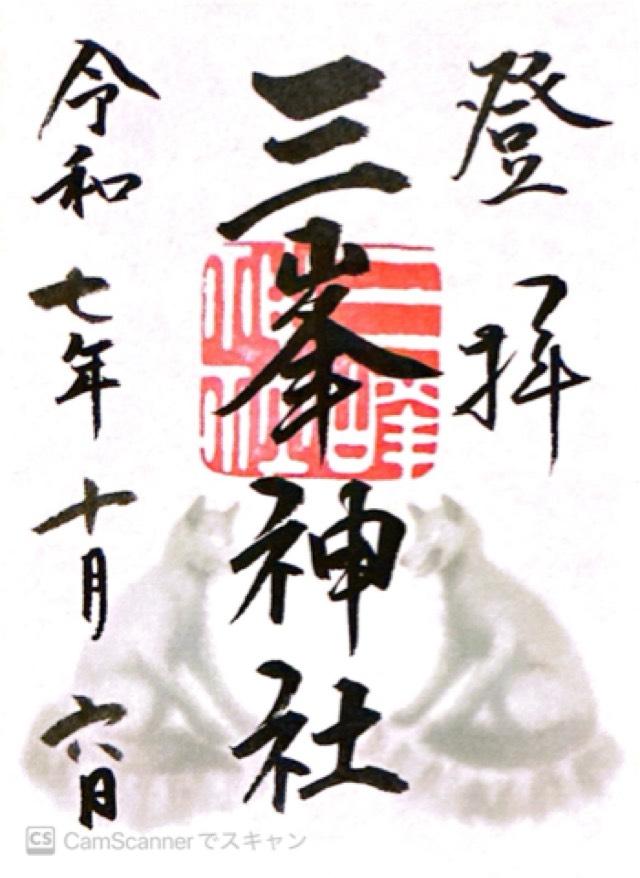 登拝
三峯神社
三峯神社
令和七年十月六日
CS CamScannerでスキャン